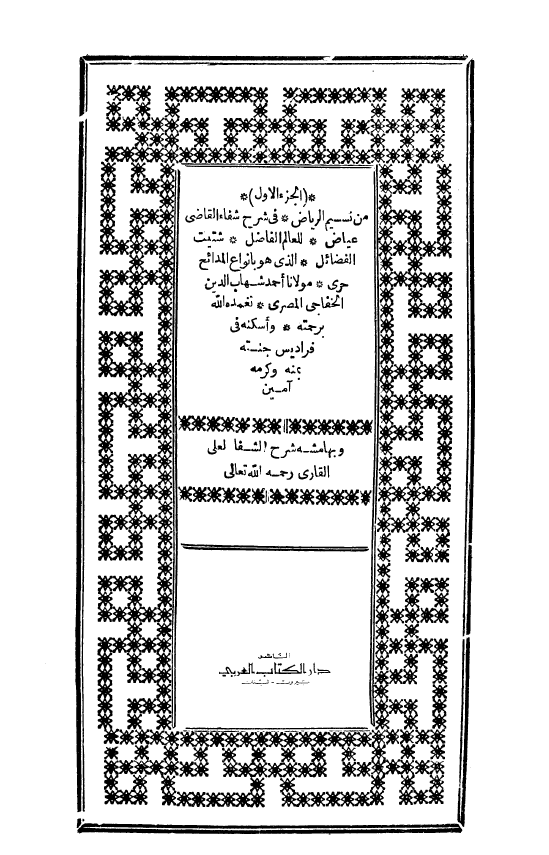 *(الجزء الاول)*
من نسيم الرياض * فى شرح شفاء القاضى
عياض * للعالم الفاضل * شتيت
الفضائل * الذى هو بانواع المدائح
حرى * مولانا أحمد شهاب الدين
الخفاجى المصرى * تغمده الله
برحمته * وأسكنه فى
فراديس جنته
بمنه وكرمه
آمين
وبهامشه شرح الشفا لعلى
القارى رحمه الله تعالى
الناشر
دار الكتاب العربي
بيروت - لبنان